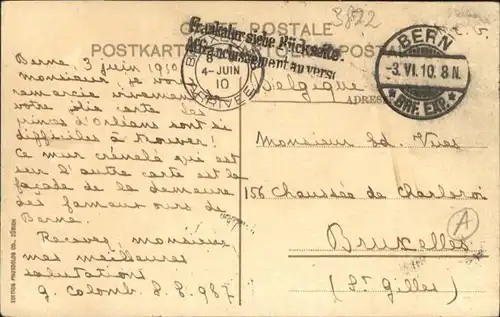 CARTE POSTALE
3822
Frankatur siehe Rückseite.
Affranchissement au verso
POSTKARTE
BERN
-3. VI. 10. 8 N.
BRF. EXP.
8
4-JUIN
10
(ARRIVÉE)
Belgique
ADRESSE
Berne, 3 juin 1910
Monsieur, je vous
remercie vivement de
votre jolie carte les
princes d'Orléans sont si
difficiles à trouver!
Ce mur crénelé qui est
sur l'autre carte est la
façade de la demeure
des fameux ours de
Berne.
Recevez, monsieur,
mes meilleures
salutations
g. Colomb. S. S. 987
Monsieur Ed.
156 Chaussée de Charleroi
Bruxelles
(St Gilles)
A
EDITION PHOTOGLOB CO., ZÜRICH